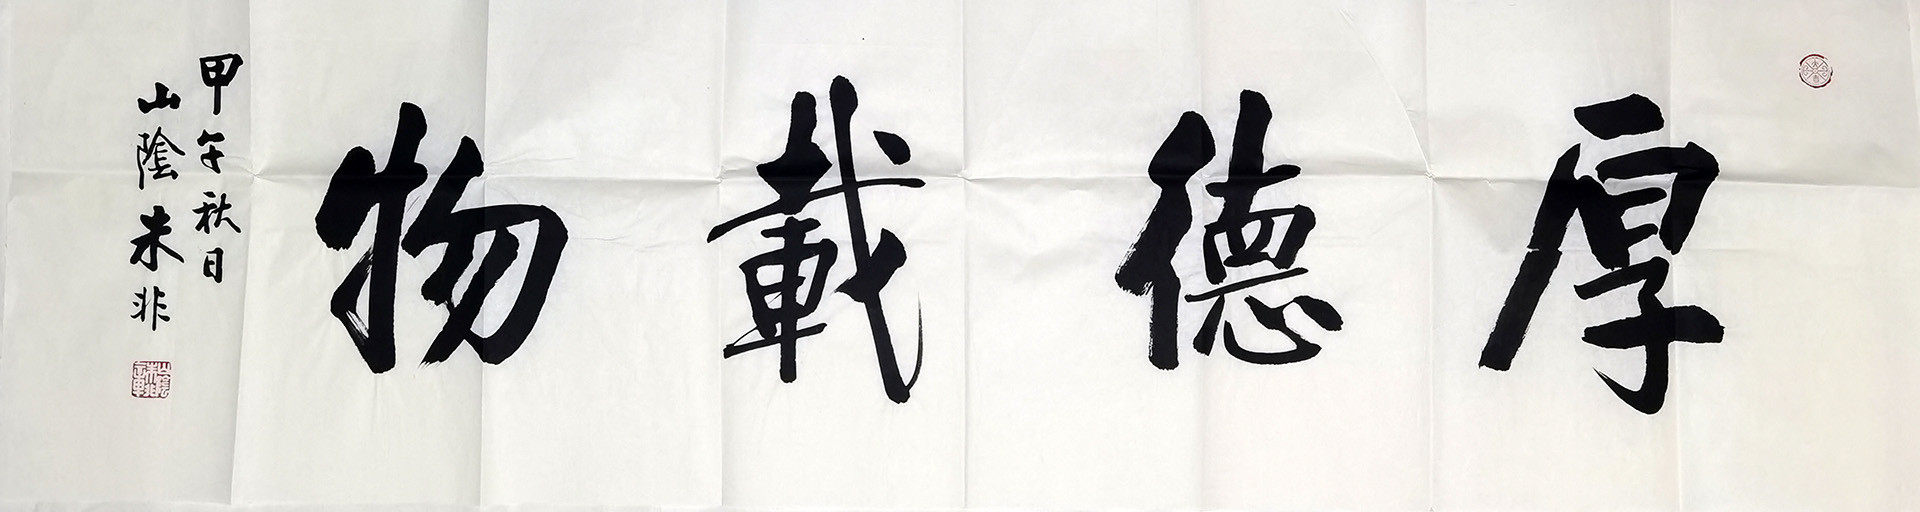 厚德載物
甲午秋日
山陰朱非